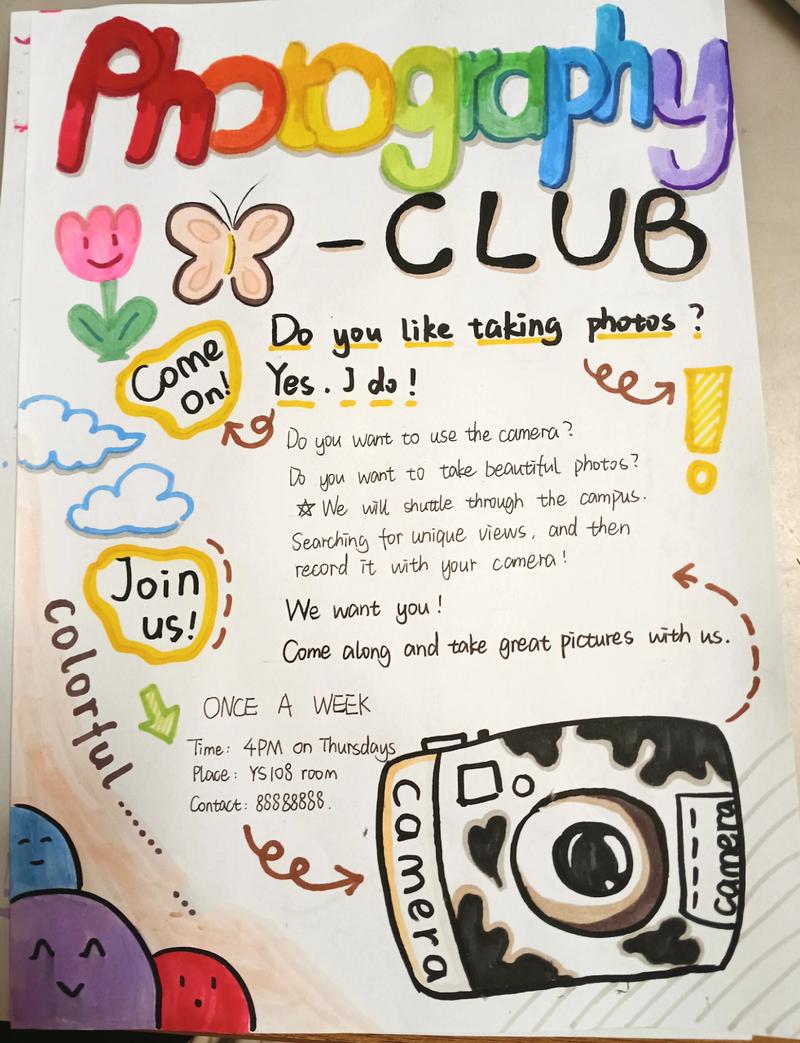 Photography
-CLUB
Do you like taking photos?
Come
on!
Yes. I do!
Do you want to use the camera?
Do you want to take beautiful photos?
☆ We will shuttle through the campus.
Searching for unique views, and then
record it with your camera!
Join
us!
We want you!
Come along and take great pictures with us.
colorful......
ONCE A WEEK
Time: 4PM on Thursdays
Place: YS108 room
Contact: 88888888.
camera
camera